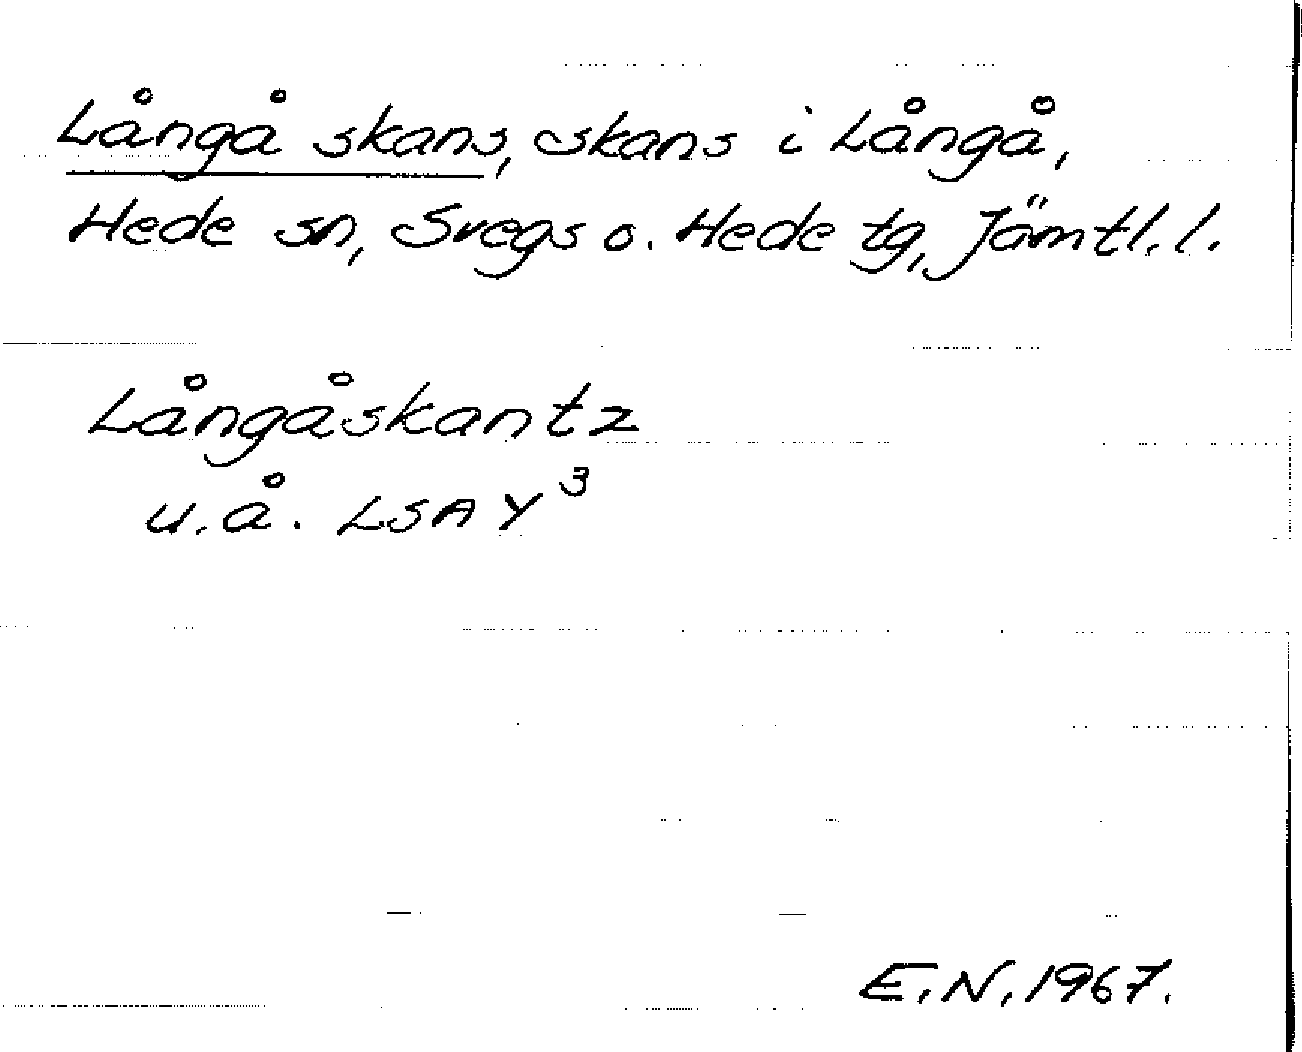 Långå skans, skans i Långå,
Hede sn, Svegs o. Hede tg, Jämtl. l.
Långåskantz
u.å. LSA Y³
E.N. 1967.